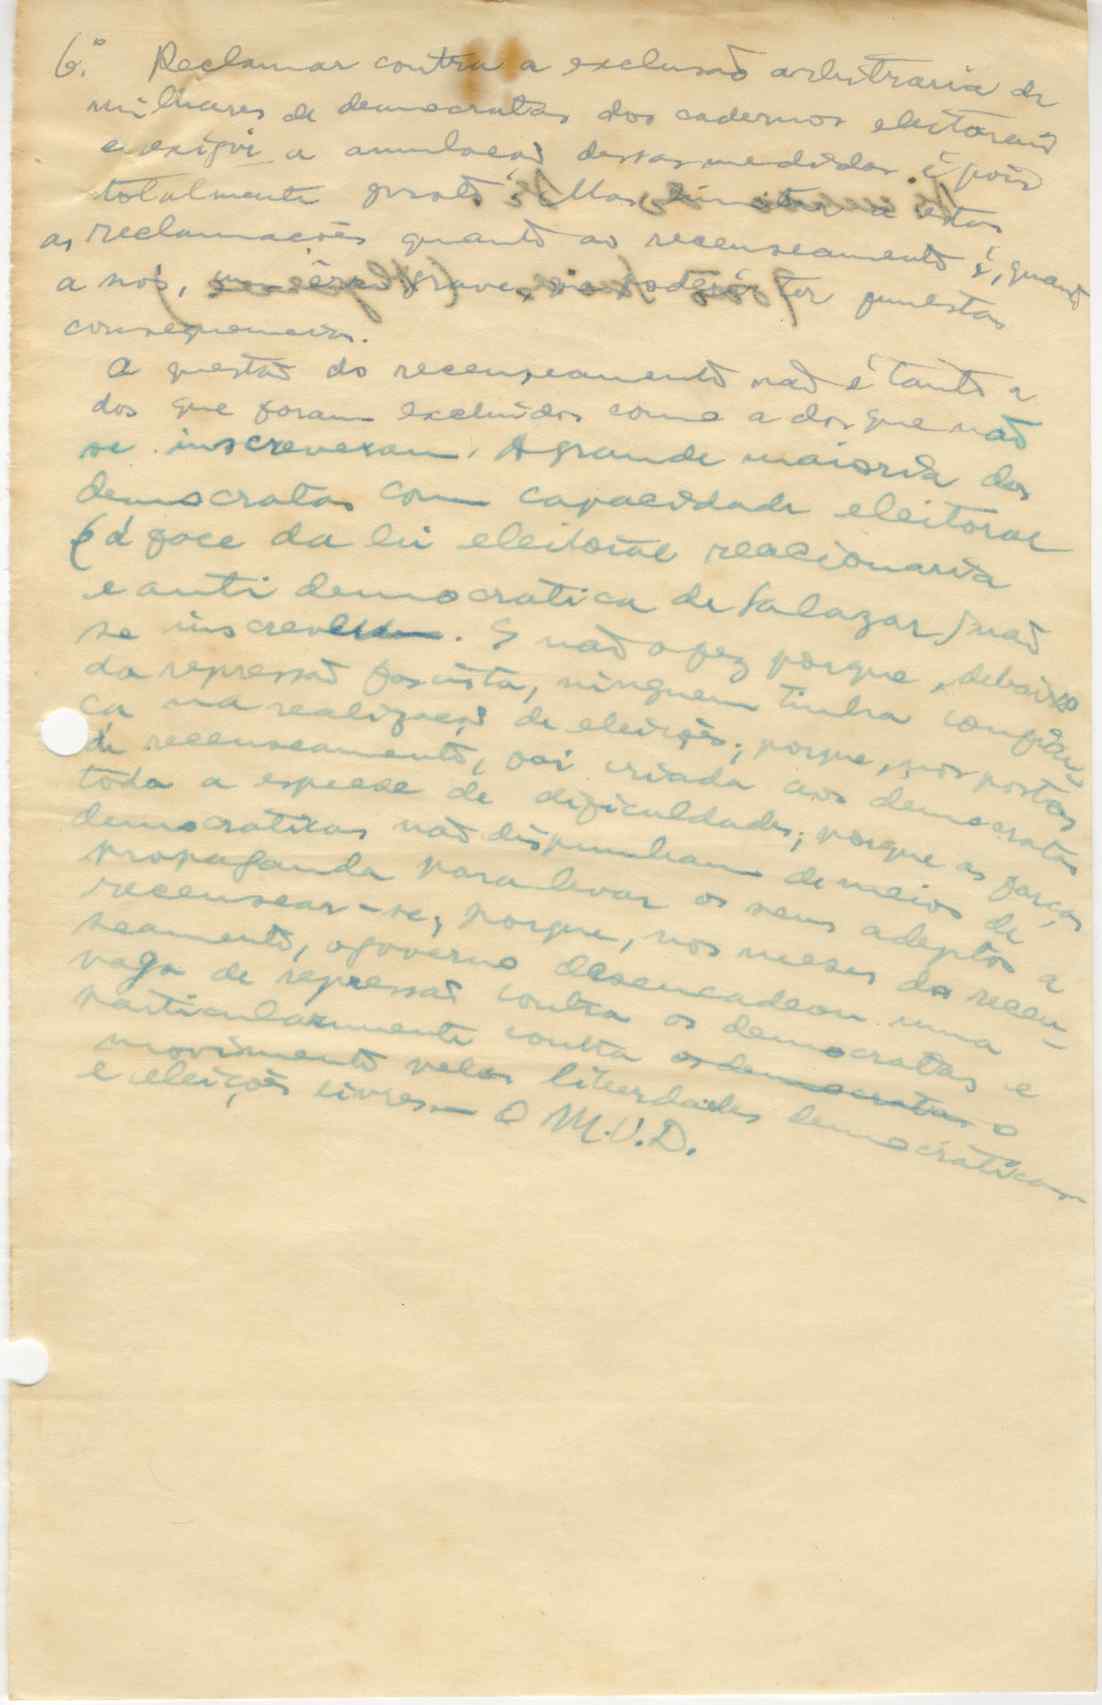 6.º Reclamar contra a exclusão arbitraria de
milhares de democratas dos cadernos eleitorais
e exigir a anulação dessas medidas é pois
totalmente justo. Mas limitar a estas
as reclamações quanto ao recenseamento é, quanto
a nós, um êrro grave, e poderá ter funestas
consequencias.
A questão do recenseamento não é tanto a
dos que foram excluidos como a dos que não
se inscreveram. A grande maioria dos
democratas com capacidade eleitoral
(á face da lei eleitoral reacionaria
e anti democratica de Salazar) não
se inscreveu. E não o fez porque, debaixo
da repressão fascista, ninguem tinha confian-
ça na realização de eleições; porque, nos postos
de recenseamento, foi criada aos democratas
toda a especie de dificuldades; porque as forças
democraticas não dispunham de meios de
propaganda para levar os seus adeptos a
recensear-se; porque, nos meses do recen-
seamento, o governo desencadeou uma
vaga de repressão contra os democratas e
particularmente contra os democratas o
movimento pelas liberdades democráticas
e eleições livres — O M.U.D.